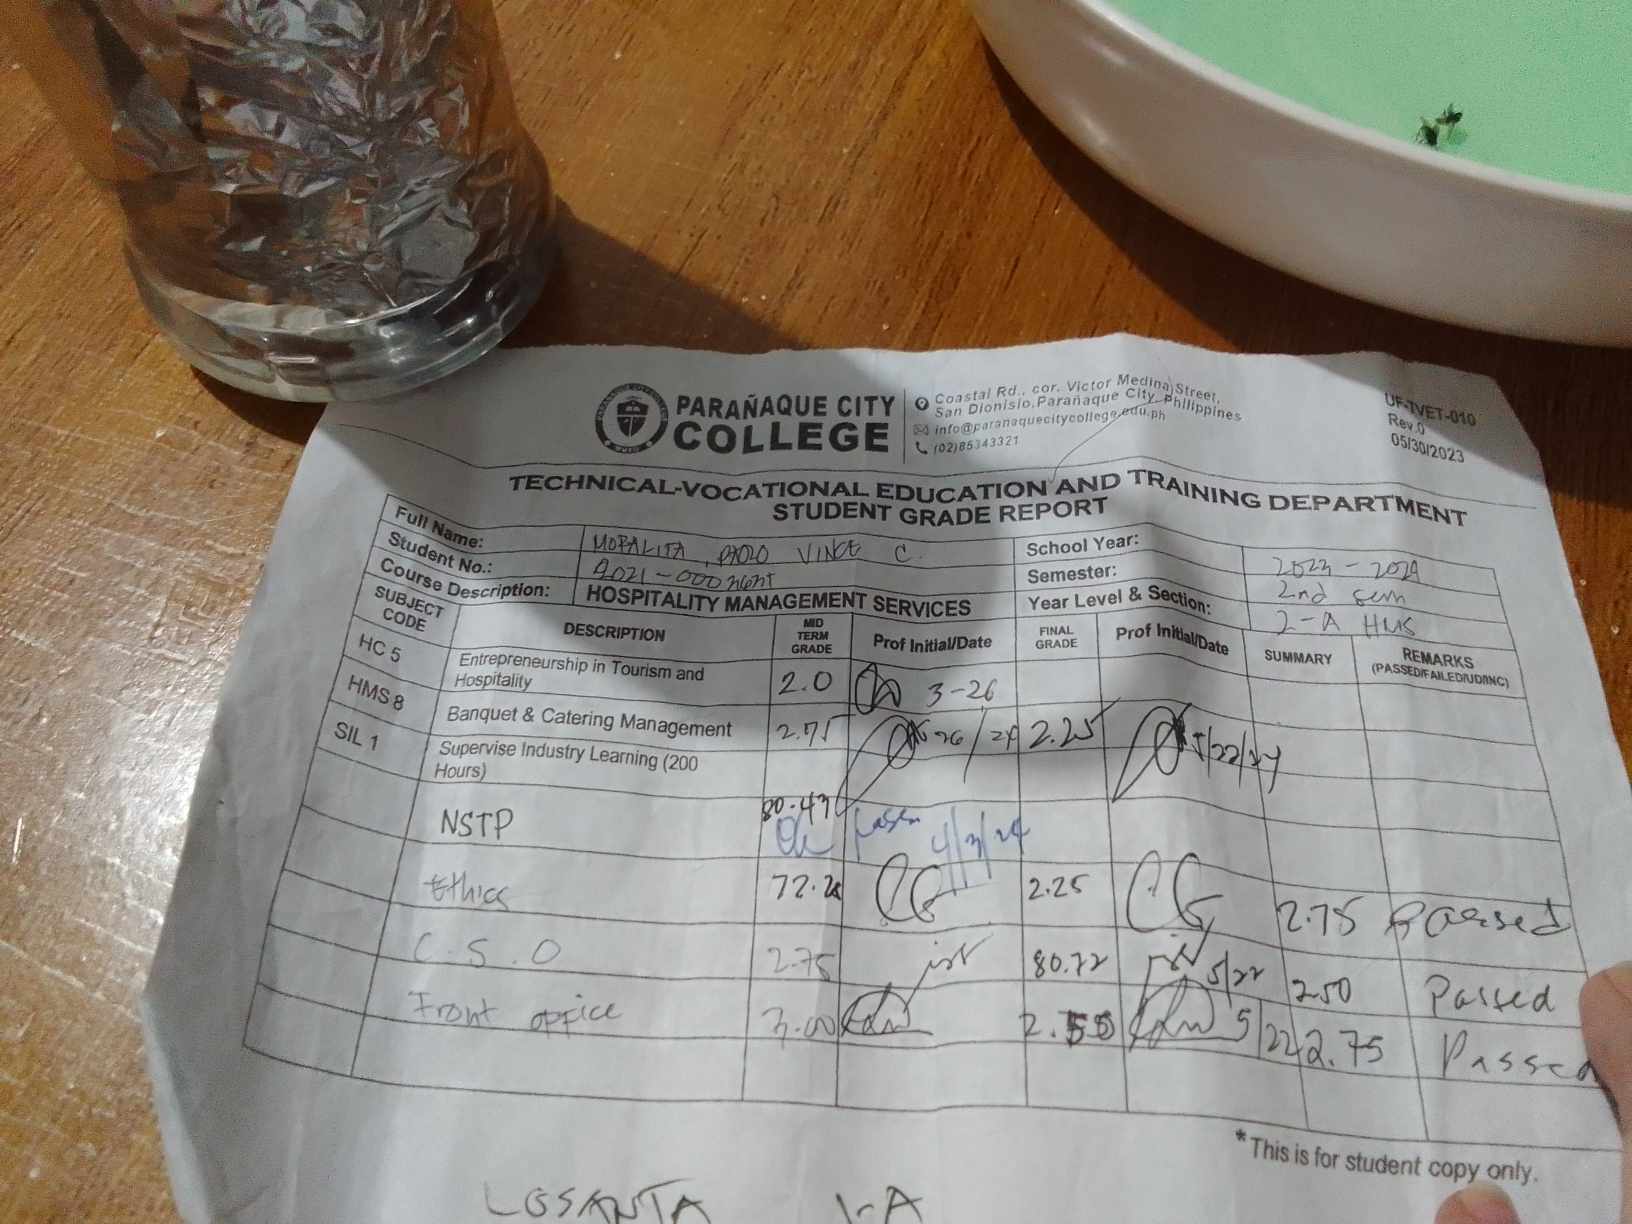 PARAÑAQUE CITY
COLLEGE
Coastal Rd., cor. Victor Medina Street,
San Dionisio, Parañaque City, Philippines
info@paranaquecitycollege.edu.ph
(02)85343321
UF-TVET-010
Rev.0
05/30/2023
TECHNICAL-VOCATIONAL EDUCATION AND TRAINING DEPARTMENT
STUDENT GRADE REPORT
Full Name: MORALITA, PAOLO VINCE C. School Year: 2023 - 2024
Student No.: Semester: 2nd sem
Course Description: HOSPITALITY MANAGEMENT SERVICES Year Level & Section: 2-A HMS
SUBJECT CODE DESCRIPTION MID TERM GRADE Prof Initial/Date FINAL GRADE Prof Initial/Date SUMMARY REMARKS (PASSED/FAILED/UD/INC)
HC 5 Entrepreneurship in Tourism and Hospitality 2.0 3-26
HMS 8 Banquet & Catering Management 2.75 26/24 2.25 5/22/24
SIL 1 Supervise Industry Learning (200 Hours)
NSTP 80.43 4/3/24
Ethics 72.28 CG 2.25 CG 2.75 Passed
C.S.O 2.75 80.72 5/22 2.50 Passed
Front office 3.00 2.55 5/22 2.75 Passed
*This is for student copy only.
LOSANTA 1-A